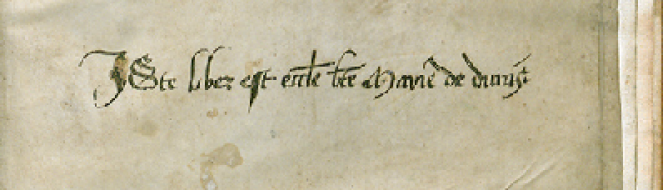 ISte liber est eccle bte Marie de